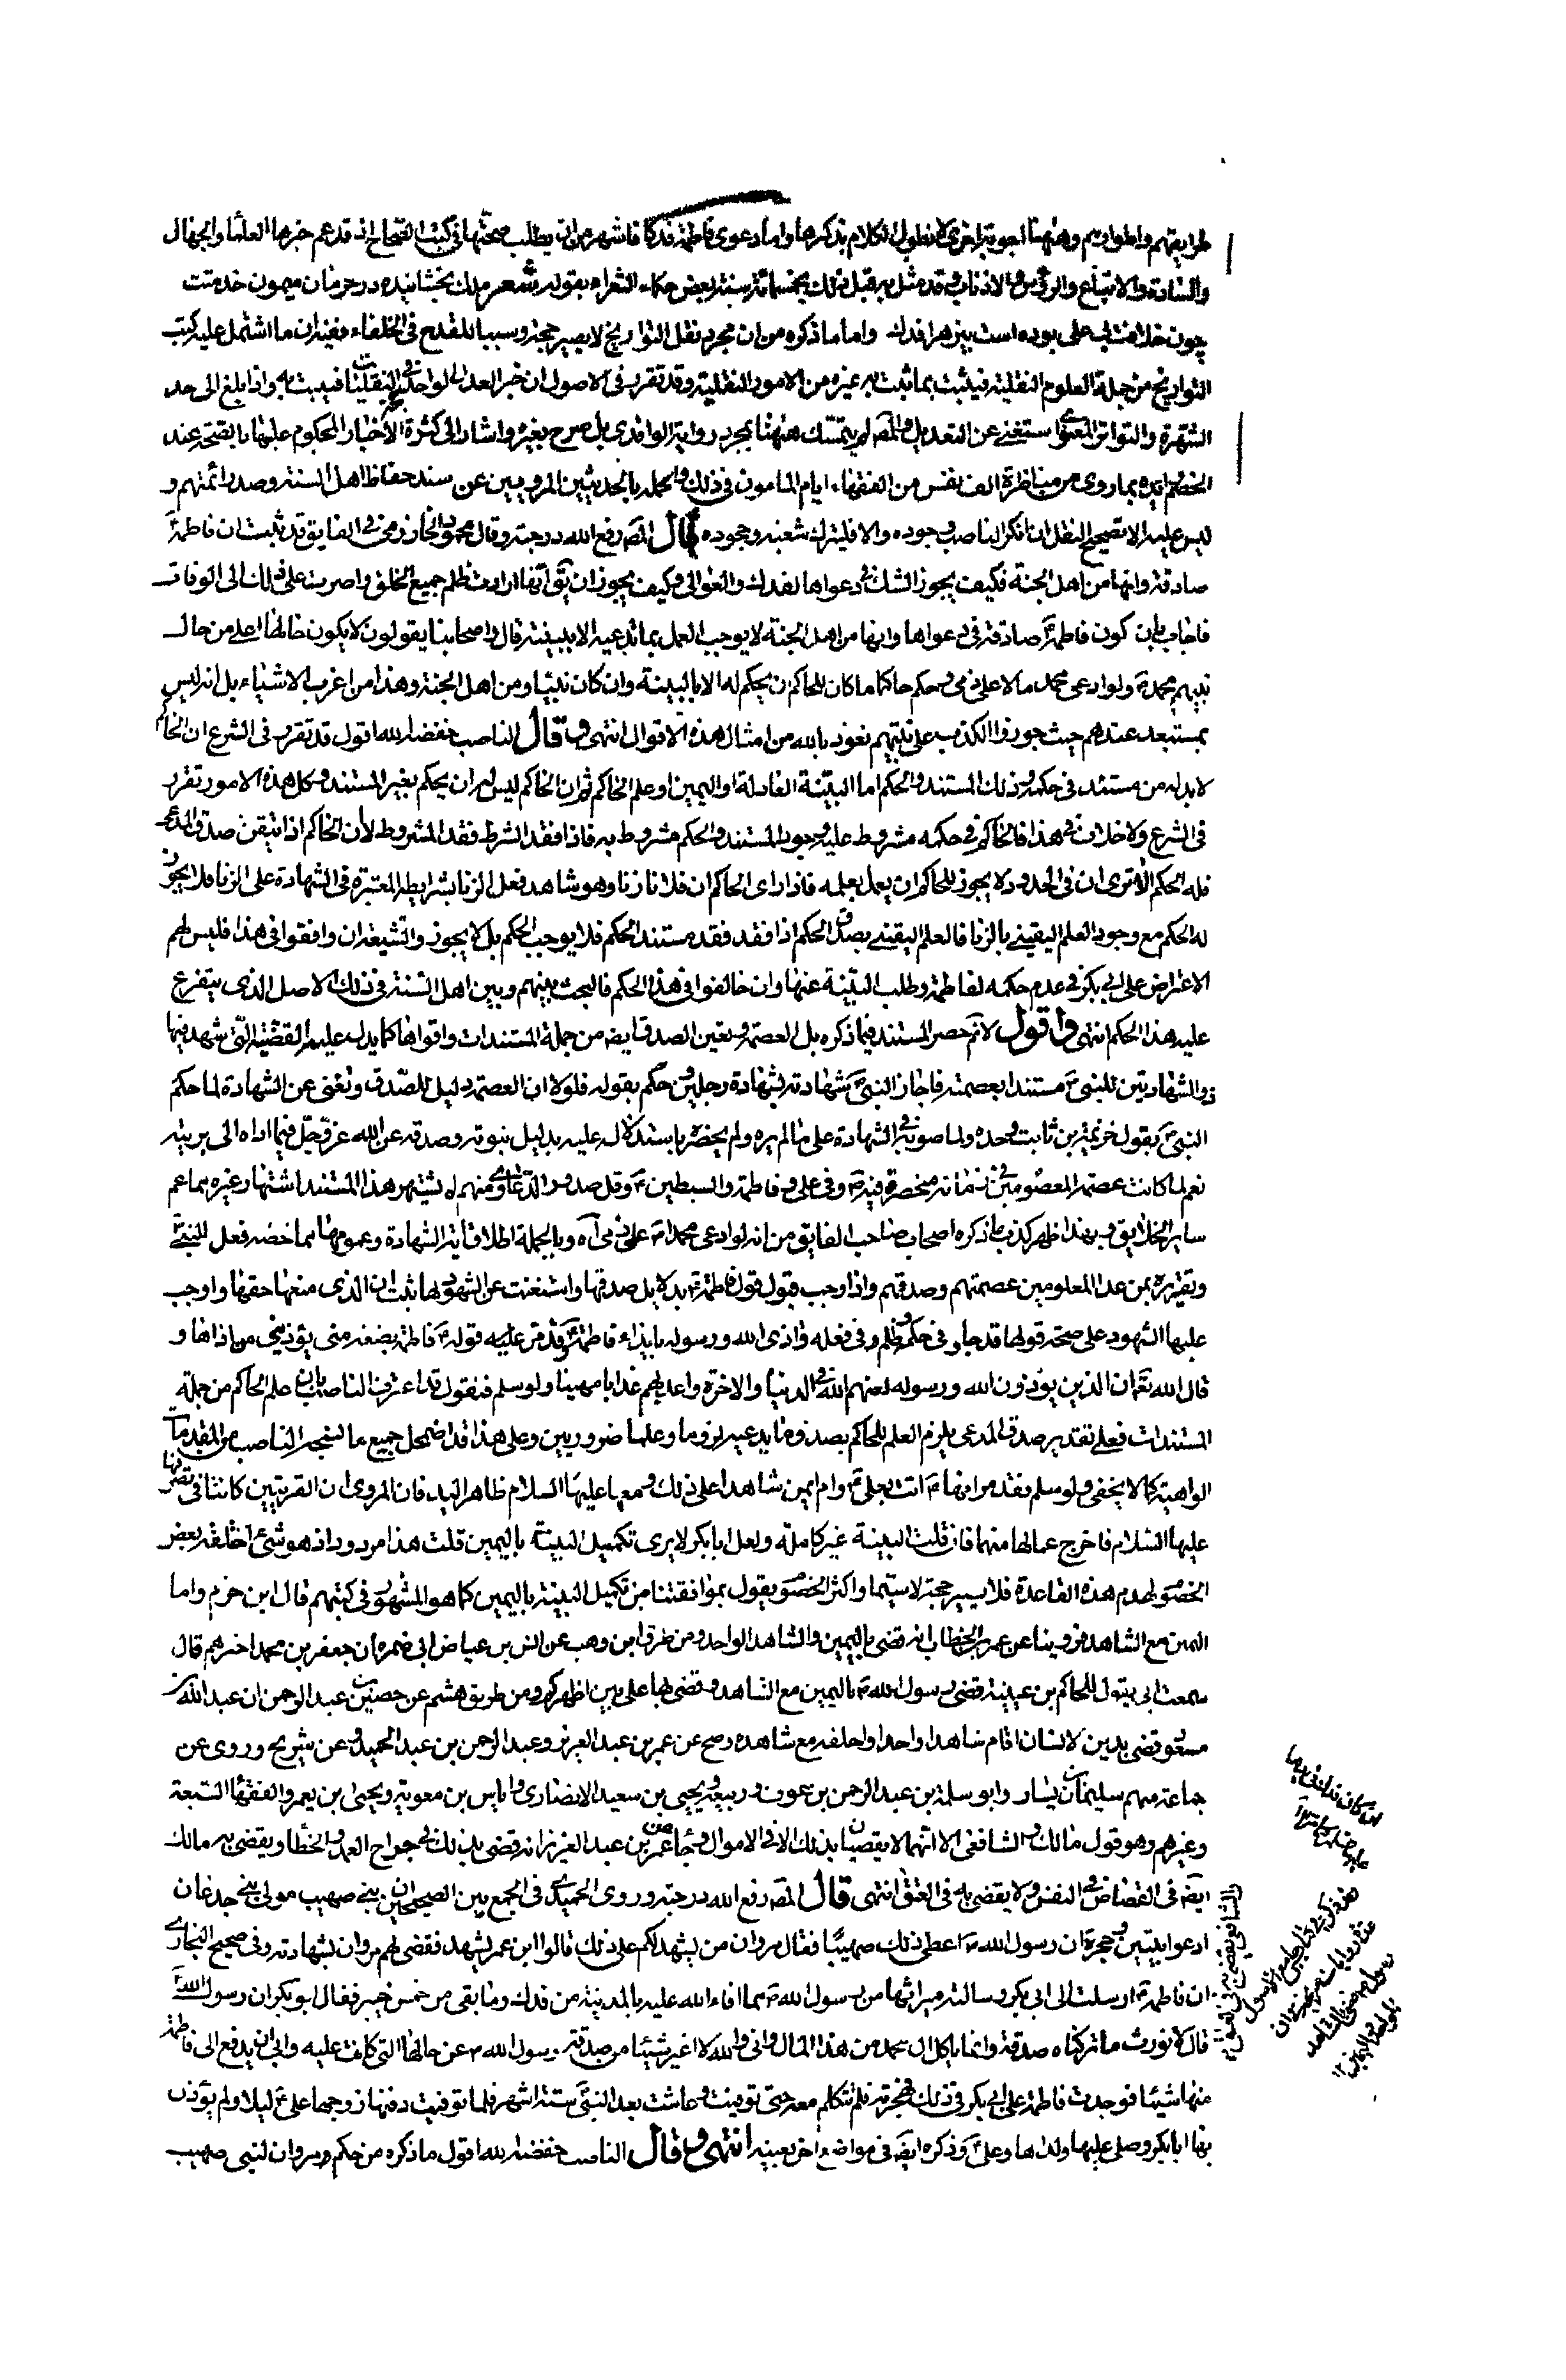 طرايقتهم واطوارهم وههنا اجوبة اخرى لا نطول الكلام بذكرها واما دعوى فاطمة فدكا فاشهر من ان يطلب صحتها في كتب الصحاح اذ قد عم خبرها العلما والجهال
والسادة والاتباع والرؤس والاذناب وقد مثل به قبل ذلك بخمسمائة سنة بعض حكماء الشعراء بقوله شعر ملك بخشانيده در حرمان ميمون خدمتت
چون خلافت بى على بوده است بى زهرا فدك واما ما ذكره من ان مجرد نقل التواريخ لا يصير حجة وسببا للقدح في الخلفاء ففيه ان ما اشتمل عليه كتب
التواريخ من جملة العلوم النقلية فيثبت بما ثبت به غيره من الامور النقلية وقد تقرر في الاصول ان خبر العدل الواحد في النقليات فيثبت به واذا بلغ الى حد
الشهرة والتواتر المعنوى استغنى عن التعديل والمصـ لم يتمسك ههنا بمجرد رواية الواقدى بل صرح بغيره واشار الى كثرة الاخبار المحكوم عليها بالصحة عند
الخصم وايده بما روى من مناظرة الف نفس من الفقهاء ايام المامون في ذلك والجملة بالحديثين المرويين عن سند حفاظ اهل السنة وصدر ائمتهم و
ليس عليه الا تصحيح النقل ان انكر الناصب وجوده والا فليترك شغبه وجحوده قال المصـ رفع الله درجته وقال محمود الخوارزمى في الفايق قد ثبت ان فاطمة
صادقة وانها من اهل الجنة فكيف يجوز الشك في دعواها لفدك والعوالى وكيف يجوز ان يقـ انها ارادت ظلم جميع الخلق واصرت على ذلك الى الوفات
فاجاب بان كون فاطمة صادقة في دعواها وانها من اهل الجنة لا يوجب العمل بما تدعيه الا ببينة قال واصحابنا يقولون لا يكون حالها اعلى من حال
نبيهم محمد ولو ادعى محمد مالا على ذمى وحكم حاكما ما كان للحاكم ان يحكم له الا بالبينة وان كان نبيا ومن اهل الجنة وهذا من اغرب الاشياء بل انه ليس
بمستبعد عندهم حيث جوزوا الكذب على نبيهم نعوذ بالله من امثال هذه الاقوال انتهى وقال الناصب خفضه الله اقول قد تقرر في الشرع ان الحاكم
لا بد له من مستند في حكمه وذلك المستند في الحكم اما البينة العادلة او اليمين او علم الحاكم ثم ان الحاكم ليس له ان يحكم بغير المستند وكل هذه الامور تقرر
في الشرع ولا خلاف في هذا فالحاكم في حكمه مشروط عليه وجود المستند والحكم مشروط به فاذا فقد الشرط فقد المشروط لان الحاكم اذا تيقن صدق المدعى
فله الحكم الا ترى ان في الحدود لا يجوز للحاكم ان يعمل بعلمه فاذا راى الحاكم ان فلانا زنا وهو شاهد فعل الزنا بشرايطه المعتبرة في الشهادة على الزنا فلا يجوز
له الحكم مع وجود العلم اليقينى بالزنا فالعلم اليقينى بصدق الحكم اذا فقد فقد مستند الحكم فلا يوجب الحكم بل لا يجوز والشيعة ان وافقوا في هذا فليس لهم
الاعتراض على ابى بكر في عدم حكمه لفاطمة وطلب البينة عنها وان خالفوا في هذا الحكم فالبحث بينهم وبين اهل السنة في ذلك الاصل الذى يتفرع
عليه هذا الحكم انتهى واقول لا نم حصر المستند فيما ذكره بل العصمة ويقين الصدق ايضـ من جملة المستندات واقواها كما يدل عليه القضية التى شهد فيها
ذو الشهادتين للنبى مستندا بعصمته فاجاز النبى شهادته بشهادة رجلين وحكم بقوله فلولا ان العصمة دليل للصدق وتغنى عن الشهادة لما حكم
النبى بقول خزيمة بن ثابت وحده ولما صوبه في الشهادة على ما لم يره ولم يحضره باستدلاله عليه بدليل نبوته وصدقه عن الله عز وجل فيما اداه الى بريته
نعم لما كانت عصمة المعصومين في زمانه منحصرة فيه وفى على وفاطمة والسبطين وقل صدور الدعاوى منهم لم يشتهر هذا المستند اشتهار غيره بما عم
ساير الخلايق وبهذا ظهر كذب ما ذكره اصحاب صاحب الفايق من انه لو ادعى محمد على ذمى اه وبالجملة اطلاق اية الشهادة وعمومها مما خصه فعل النبى
وتقريره بمن عدا المعلومين عصمتهم وصدقهم واذا وجب قبول قول فاطمة بدلايل صدقها واستغنت عن الشهود لها ثبت ان الذى منعها حقها واوجب
عليها الشهود على صحة قولها قد جار في حكمه وظلم في فعله واذى الله ورسوله بايذاء فاطمة وقد مر عليه قوله فاطمة بضعة منى يؤذينى من اذاها و
قال الله تعـ ان الذين يؤذون الله ورسوله لعنهم الله في الدنيا والاخرة واعد لهم عذابا مهينا ولو سلم فنقول قد اعترف الناصب بان علم الحاكم من جملة
المستندات فعلى تقدير صدق المدعى يلزم العلم للحاكم بصدق ما يدعيه لزوما وعلما ضروريين وعلى هذا قد اضمحل جميع ما نسجه الناصب من المقدمات
الواهية كما لا يخفى ولو سلم فقد مر انها اتت بعلى وام ايمن شاهدا على ذلك ومعها عليها السلام ظاهر اليد فان المروى ان القريتين كانتا في تصرفها
عليها السلام فاخرج عمالها منهما فان قلت البينة غير كاملة ولعل ابا بكر لا يرى تكميل البينة باليمين قلت هذا مردود اذ هو شئ اختلقه بعض
الخصوم لهدم هذه القاعدة فلا يصير حجة لا سيما واكثر الخصوم يقول بموافقتنا من تكميل البينة باليمين كما هو المشهور في كتبهم قال ابن حزم واما
اليمين مع الشاهد فروينا عن عمر بن الخطاب انه قضى باليمين والشاهد الواحد ومن طرق ابن وهب عن انس بن عياض ابى ضمرة ان جعفر بن محمد اخبرهم قال
سمعت ابى يقول للحاكم بن عيينة قضى رسول الله باليمين مع الشاهد وقضى بها على بين اظهركم ومن طريق هشيم عن حصين بن عبد الرحمن ان عبد الله بن
مسعود قضى بدين لانسان اقام شاهدا واحدا واحلفه مع شاهده وصح عن عمر بن عبد العزيز وعبد الرحمن بن عبد الحميد وعن شريح وروى عن
جماعة منهم سليمان بن يسار وابو سلمة بن عبد الرحمن بن عوف وربيعة ويحيى بن سعيد الانصارى واياس بن معوية ويحيى بن يعمر والفقها السبعة
وغيرهم وهو قول مالك والشافعى الا انهما لا يقضيان بذلك الا في الاموال وجا عن عمر بن عبد العزيز انه قضى بذلك في جراح العمد والخطا ويقضى به مالك
ايضـ في القصاص في النفس ولا يقضى به في العتق انتهى قال المصـ رفع الله درجته وروى الحميدى في الجمع بين الصحيحين ان بنى صهيب مولى بنى جدعان
ادعوا بيتين وحجرة ان رسول الله اعطى ذلك صهيبا فقال مروان من يشهد لكم على ذلك قالوا ابن عمر يشهد فقضى لهم مروان بشهادته وفى صحيح البخارى
ان فاطمة ارسلت الى ابى بكر وسالته ميراثها من رسول الله مما افاء الله عليه بالمدينة من فدك وما بقى من خمس خيبر فقال ابو بكر ان رسول الله
قال لا نورث ما تركناه صدقة وانما ياكل ال محمد من هذا المال وانى والله لا اغير شيئا من صدقة رسول الله عن حالها التى كانت عليه وابى ان يدفع الى فاطمة
منها شيئا فوجدت فاطمة على ابى بكر في ذلك فهجرته فلم تتكلم معه حتى توفيت وعاشت بعد النبى ستة اشهر فلما توفيت دفنها زوجها على ليلا ولم يؤذن
بها ابا بكر وصلى عليها ولداها وعلى وذكره ايضـ في مواضع اخر بعينه انتهى وقال الناصب خفضه الله اقول ما ذكره من حكم مروان لبنى صهيب